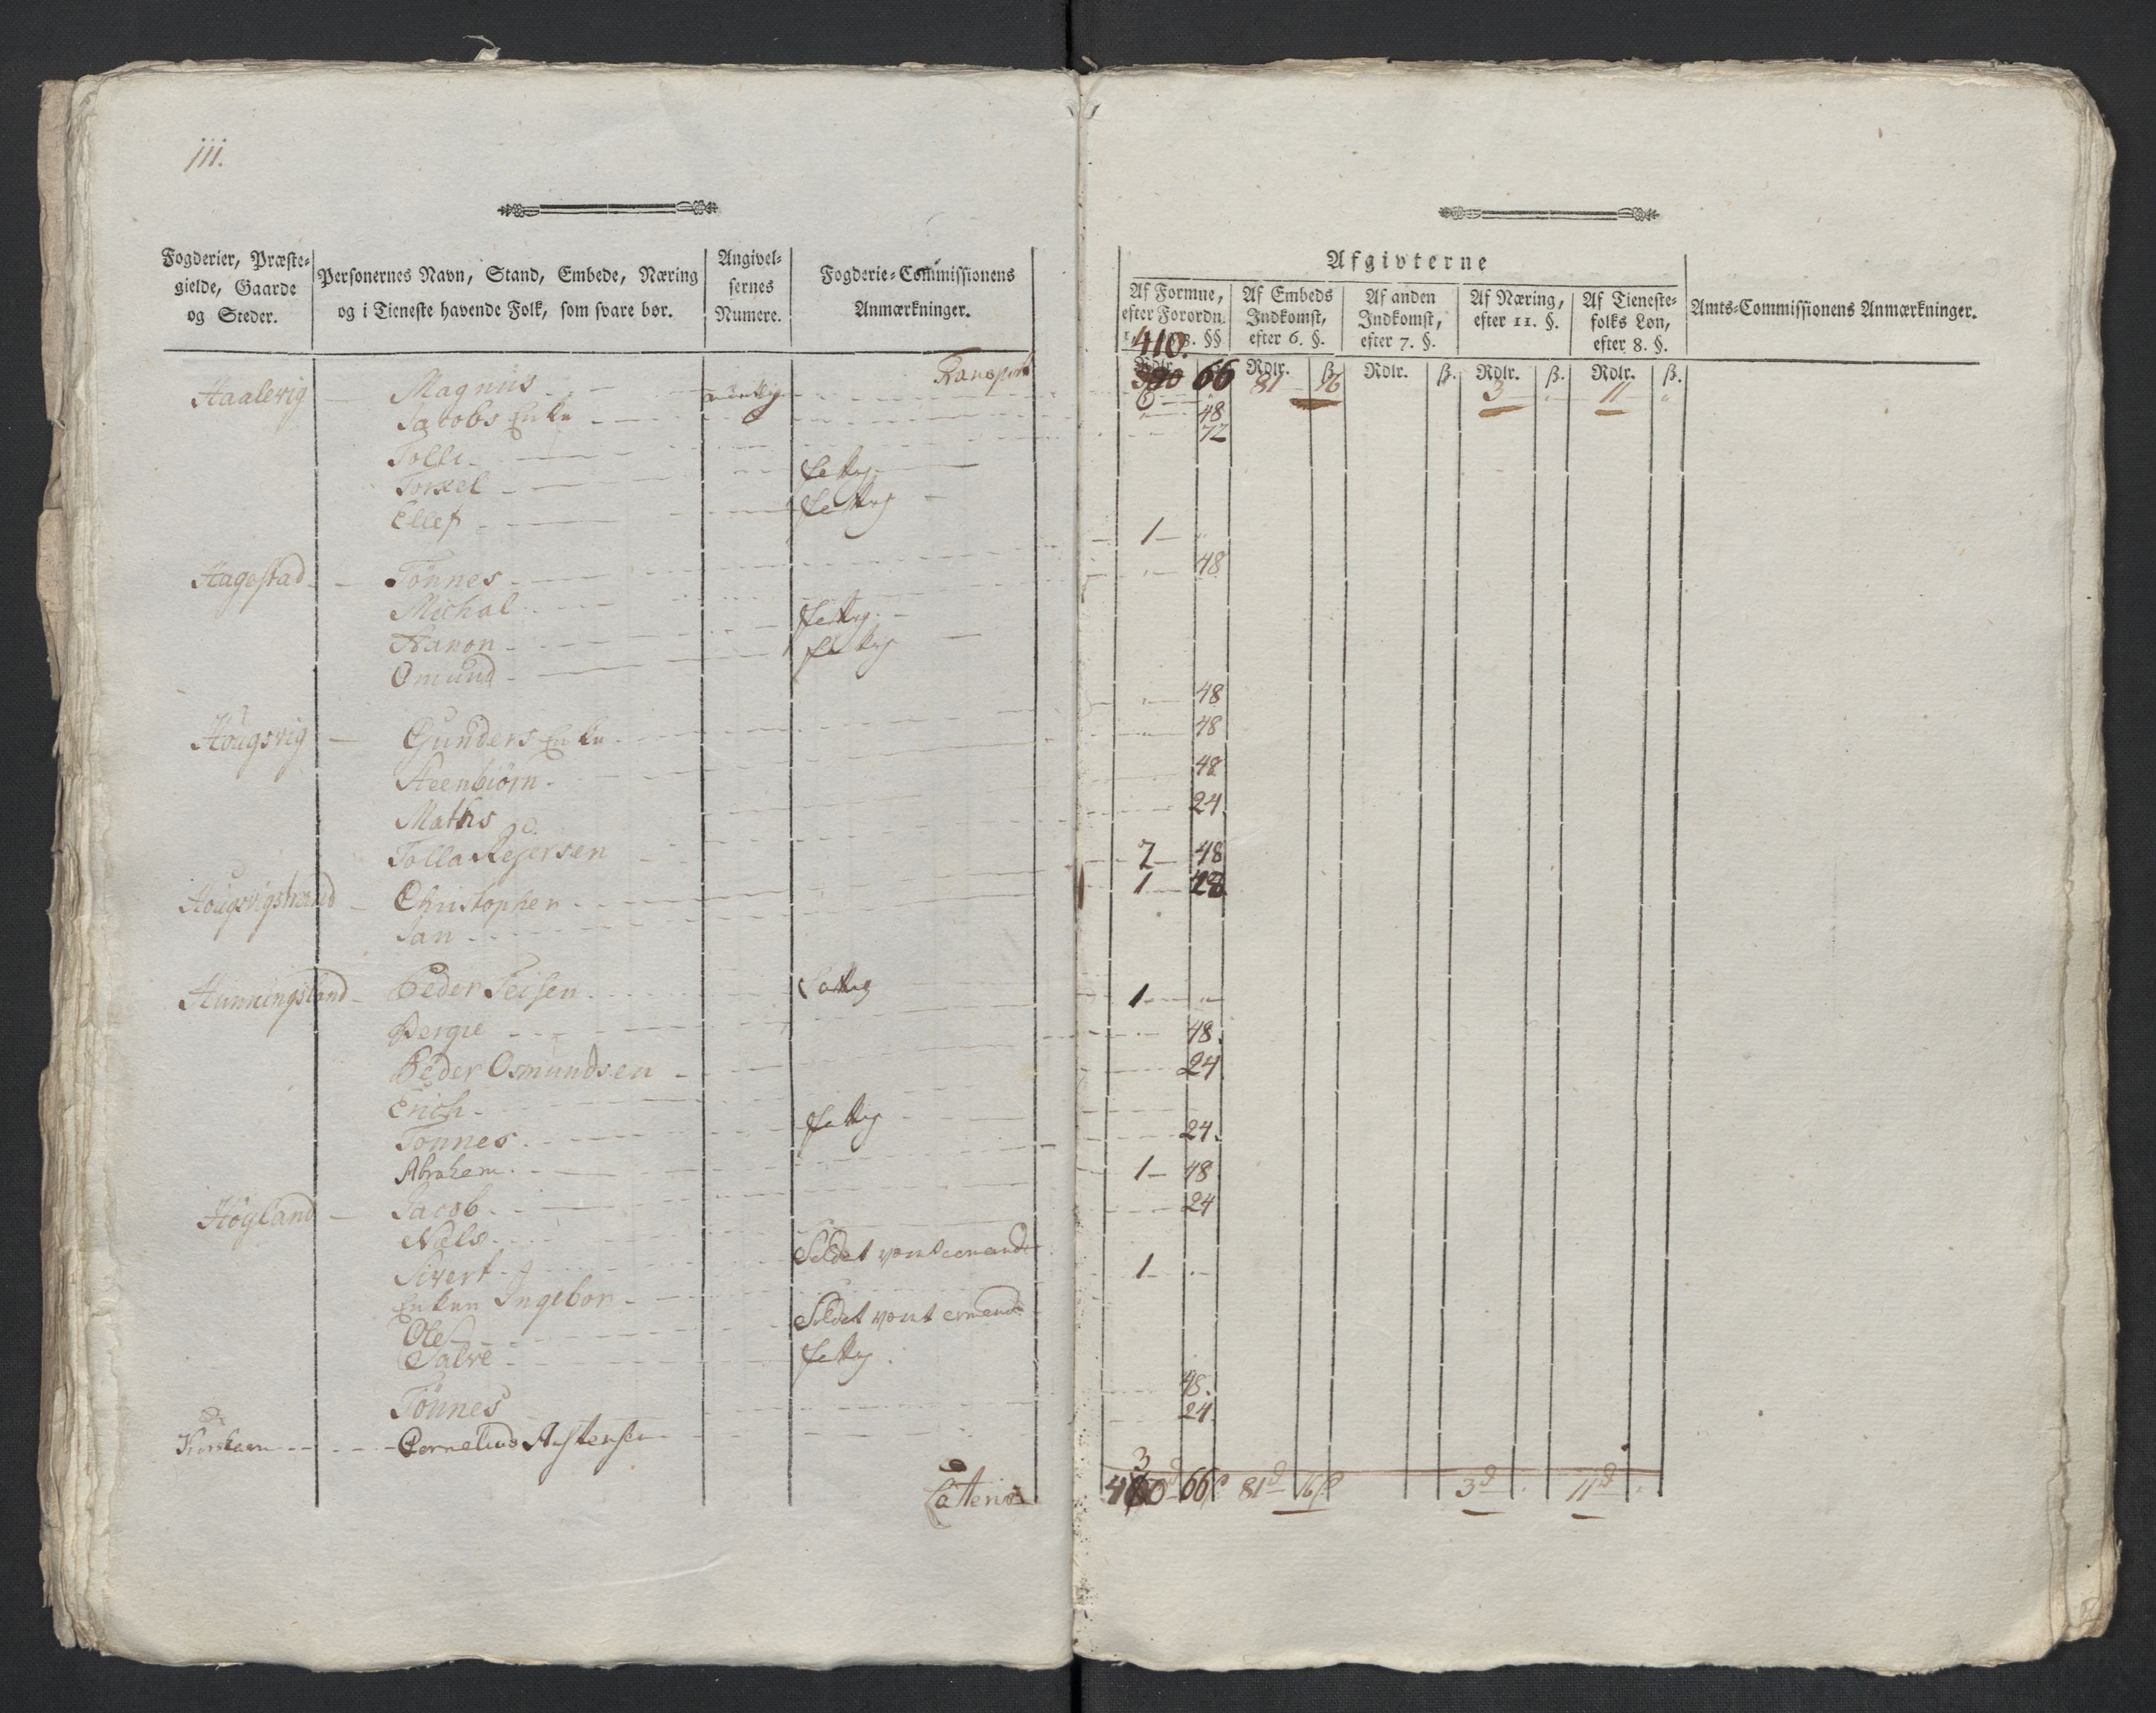 111.
Fogderier, Præste-
gielde, Gaarde
og Steder.
Personernes Navn, Stand, Embede, Næring
og i Tieneste havende Folk, som svare bør.
Angivel-
sernes
Numere.
Fogderie-Commissionens
Anmærkninger.
Transport
Haalevig — Magnus
Jacobs Enke
Tolli
Torkel fattig
Ellef fattig
Hagestad — Tønnes
Michal
Haaon fattig
Omund fattig
Hougsvig — Gunders Enke
Steenbiørn
Mathis
Tolla Rejersen
Hougsvigstrand — Christopher
Jan
Hunningsland — Peder Teisen fattig
Bergie
Peder Osmundsen
Erich
Tønnes fattig
Abraham
Høyland — Jacob
Nels
Sivert
Enken Ingebor
Ole
Salve fattig
Tønnes
Cornelius
Latteris
Afgivterne
Af Formue,
efter Forordn.
§§
Af Embeds
Indkomst,
efter 6. §.
Af anden
Indkomst,
efter 7. §.
Af Næring,
efter 11. §.
Af Tieneste-
folks Løn,
efter 8. §.
Amts-Commissionens Anmærkninger.
410.
Rdlr. ß. Rdlr. ß. Rdlr. ß. Rdlr. ß.
66 81 16 3 11
6
48
72
1
48
48
48
48
24
2 48
1
1
48.
24
24.
1 48
24
1
48.
24
3
66 81 16 3 11